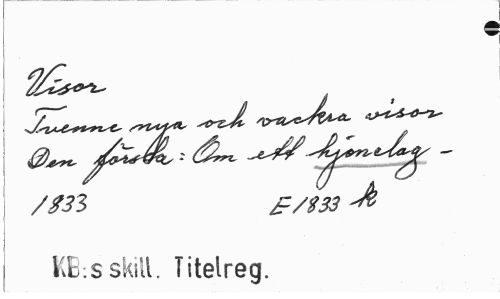 Visor
Tvenne nya och vackra visor
Den första: Om ett hjonelag -
1833 E 1833 k
KB:s skill. Titelreg.